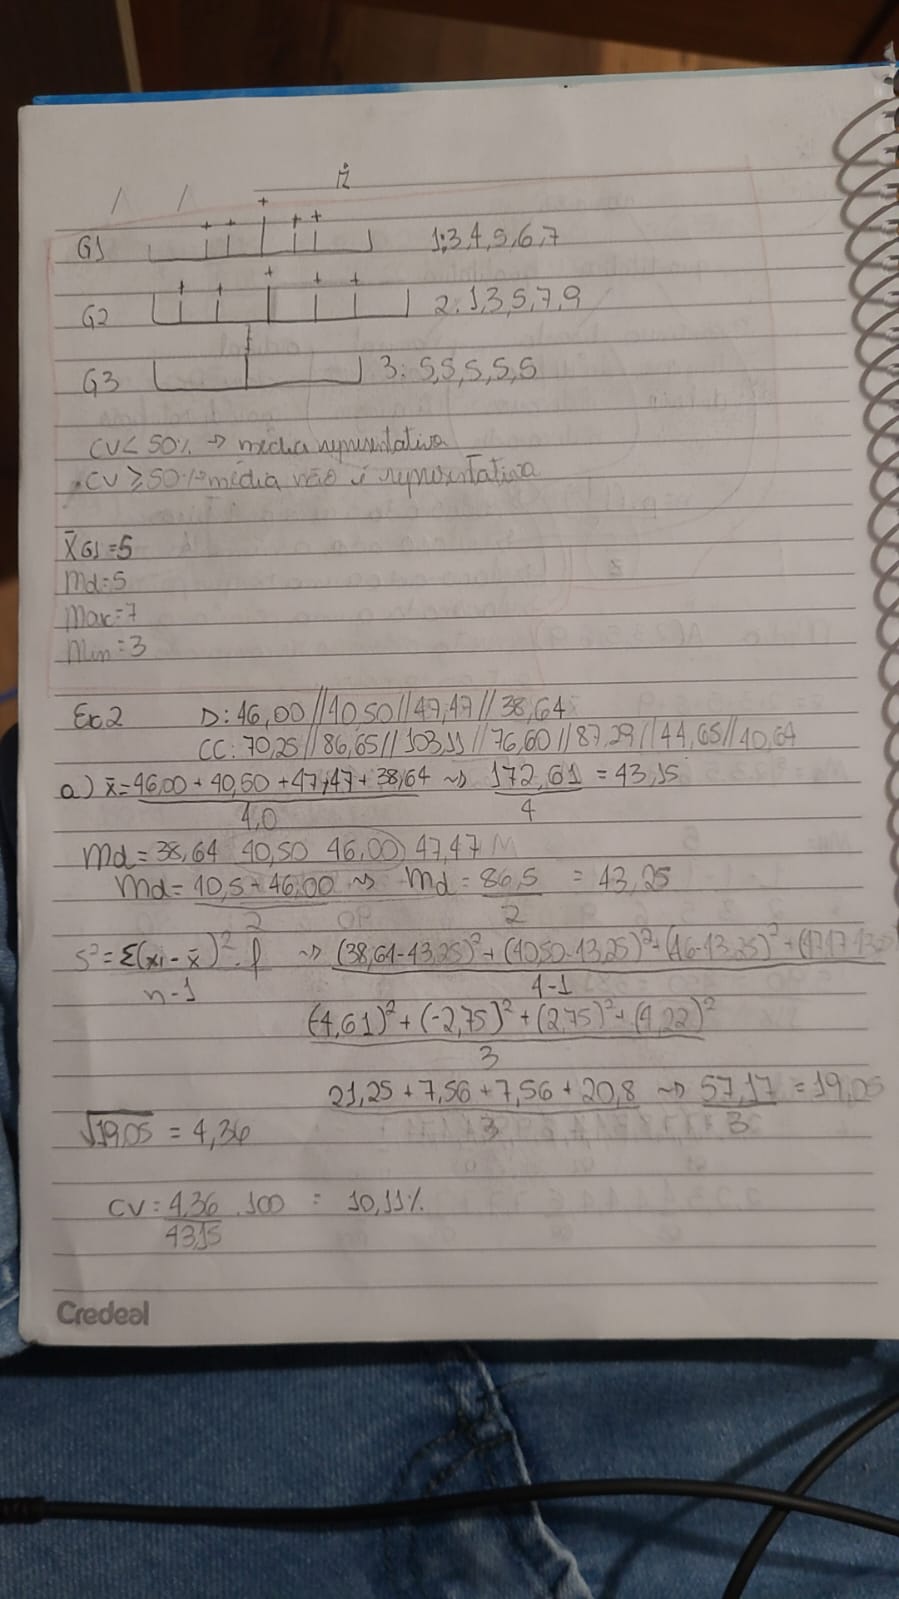 G1 1:3,4,5,6,7
G2 2:1,3,5,7,9
G3 3: 5,5,5,5,5
CV < 50% → média representativa
CV ≥ 50% → média não é representativa
X̄G1 = 5
Md = 5
Max = 7
Min = 3
Ex 2 D: 46,00 // 40,50 // 47,47 // 38,64
CC: 70,25 // 86,65 // 103,11 // 76,60 // 87,29 // 44,65 // 40,64
a) x̄ = 46,00 + 40,50 + 47,47 + 38,64 ⇝ 172,61 = 43,15
4,0 4
Md = 38,64 40,50 46,00 47,47
Md = 40,5 + 46,00 ⇝ Md = 86,5 = 43,25
2 2
S² = Σ(xi - x̄)² . f ⇝ (38,64-43,25)² + (40,50-43,25)² + (46-43,25)² + (47,47-43,25
n-1 4-1
(-4,61)² + (-2,75)² + (2,75)² + (4,22)²
3
21,25 + 7,56 + 7,56 + 20,8 ⇝ 57,17 = 19,05
3 3
√19,05 = 4,36
CV = 4,36 . 100 = 10,11%
43,15
Credeal